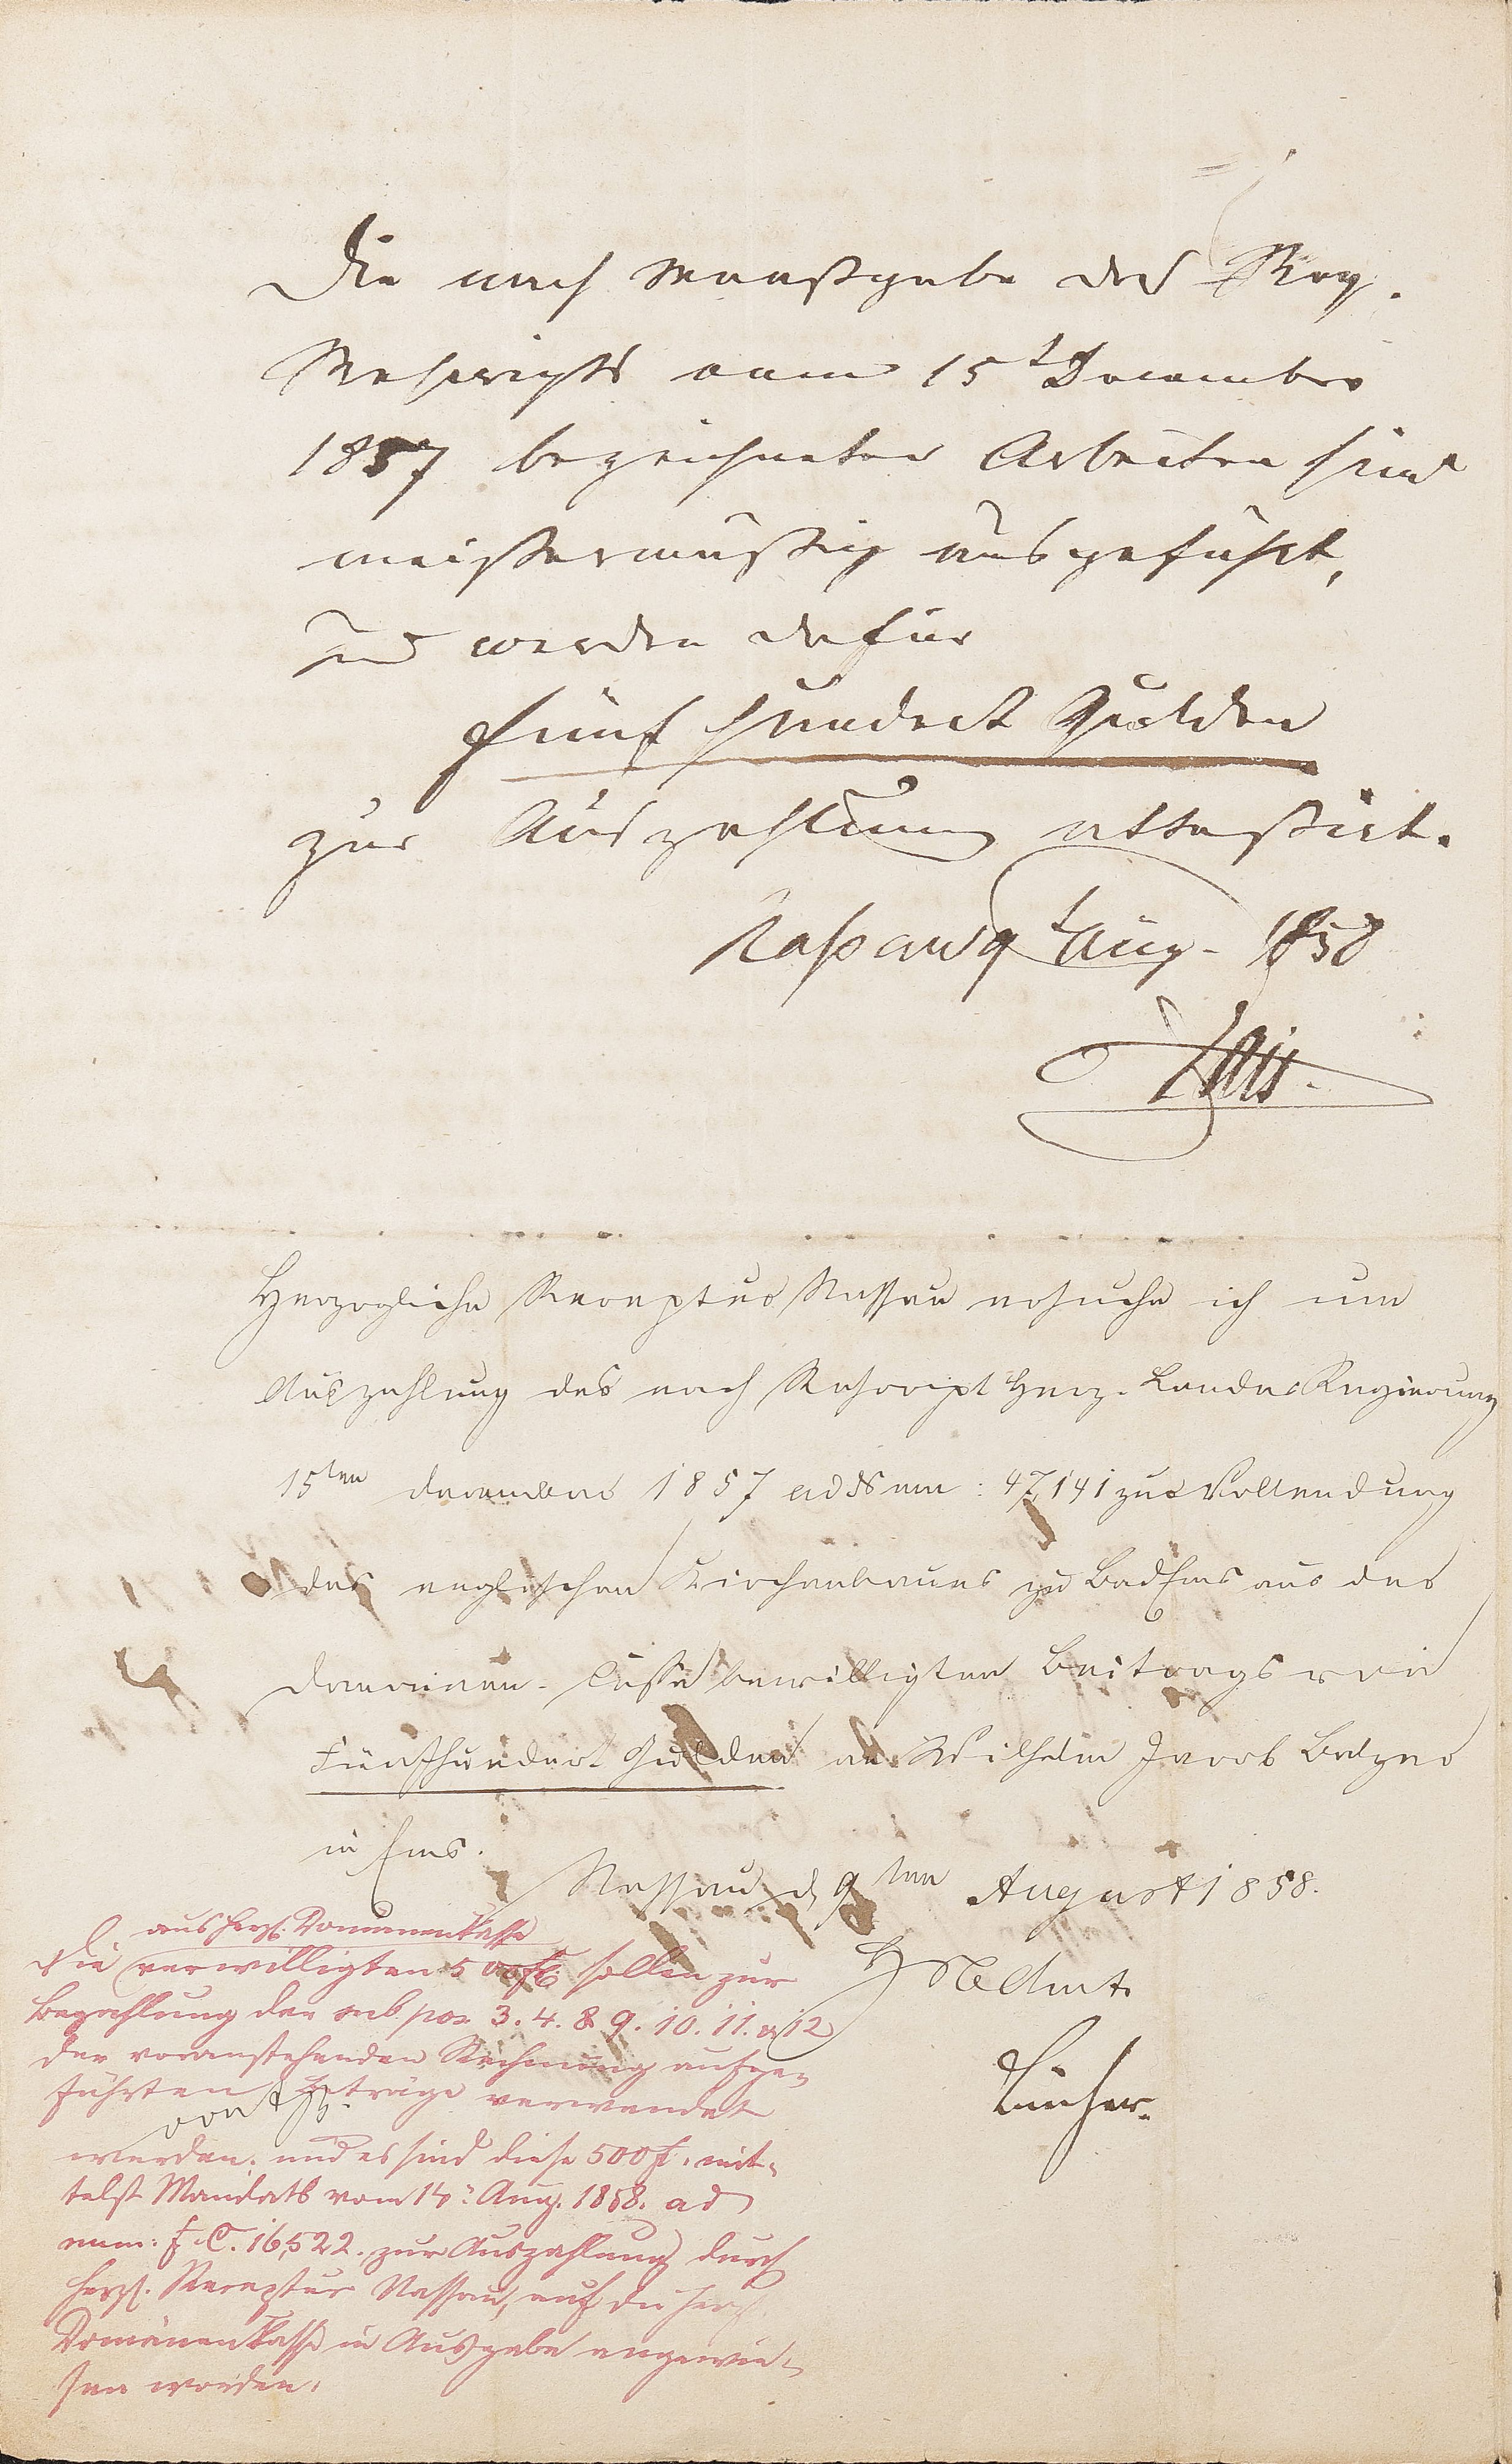 Die nach Maaßgabe des Reg.
Rescripts vom 15t December
1857 bezeichneten Arbeiten sind
meistermäßig ausgeführt,
und werden dafür
fünf hundert Gulden
zur Auszahlung attestirt.
Nassau 9t Aug. 1858
Zais.
Herzogliche Receptur Nassau ersuche ich um
Auszahlung des nach Rescript Herz. Landes Regierung
15ten December 1857 ad Num: 47,141 zur Vollendung
des englischen Kirchenbaues zu Bad Ems aus der
Domainen-Casse bewilligten Beitrags von
Fünfhundert Gulden an Wilhelm Jacob Balzer
in Ems.
Nassau d 9ten August 1858.
H N Amt
aus Herzl. Domänenkasse
Die verwilligten 500 fl. sollen zur
Bezahlung der sub pos. 3. 4. 8 9. 10. 11. & 12
der voranstehenden Rechnung aufge-
führten Beträge verwendet
werden. und es sind diese 500 f. mit-
telst Mandats vom 14. Aug. 1858. ad
num. F. C. 16,522. zur Auszahlung durch
Herzl. Receptur Nassau, auf die Herzl.
Domänenkasse in Ausgabe angewie-
sen worden.